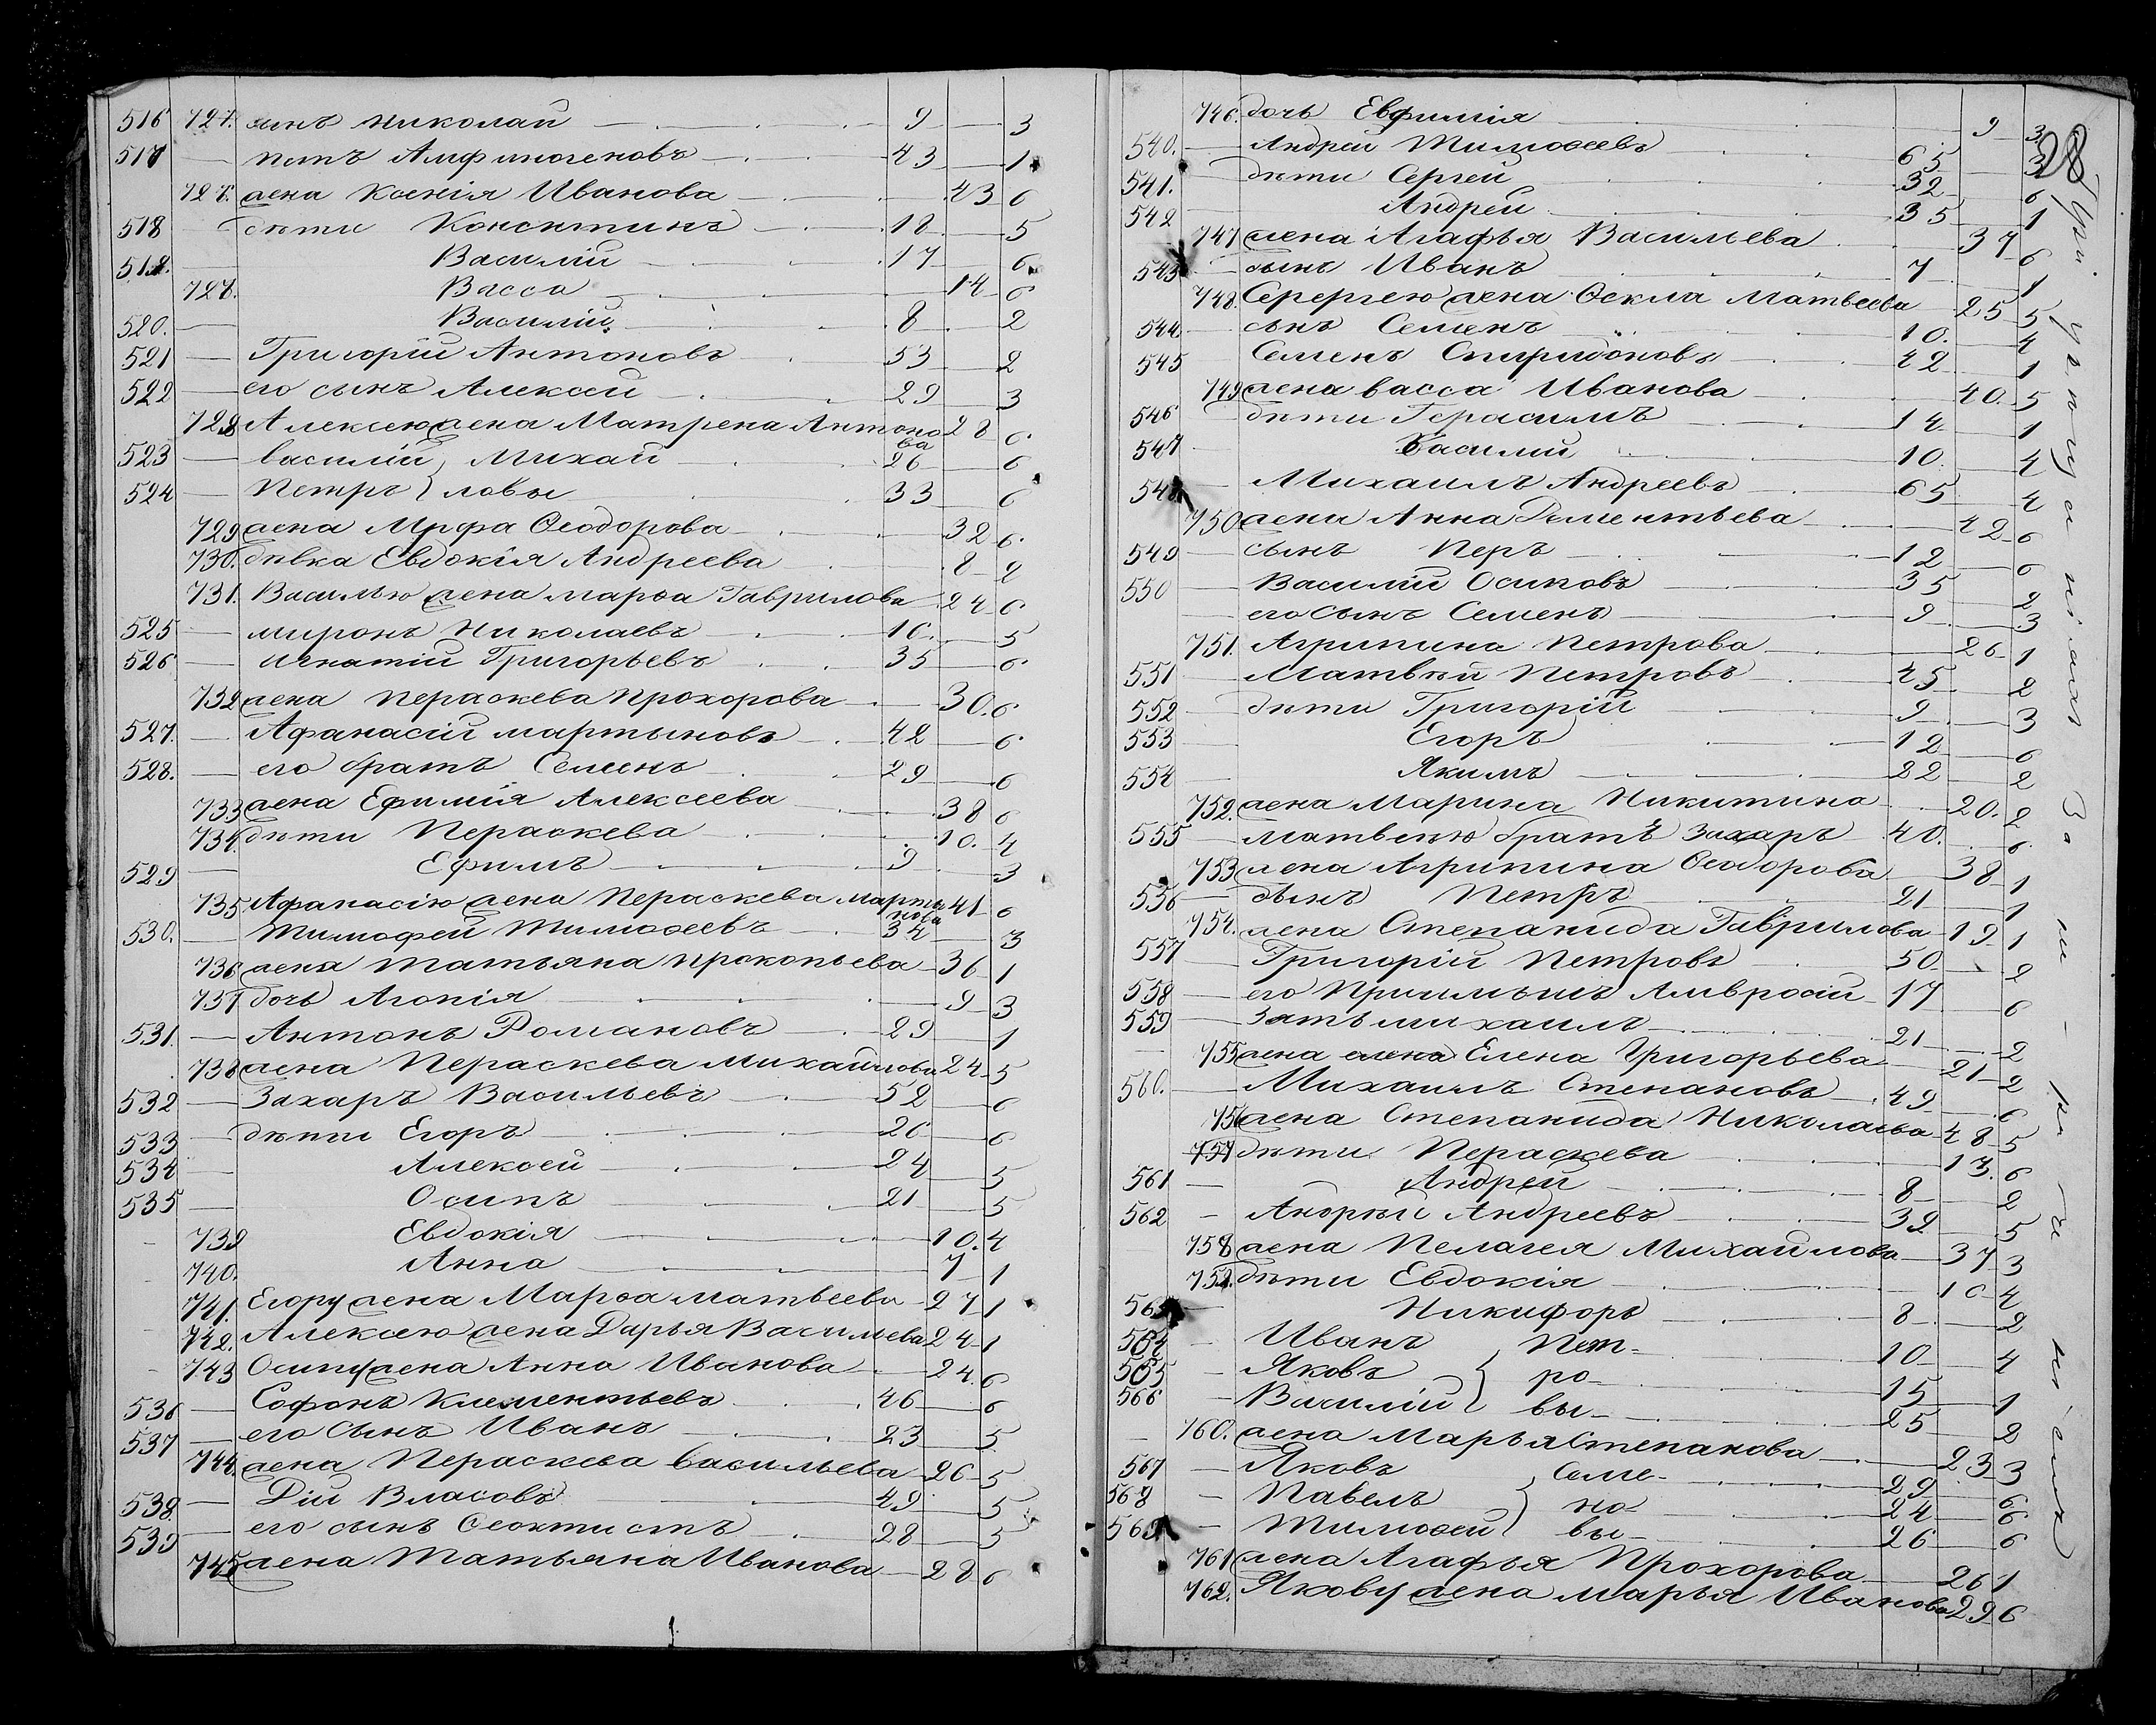 516 727. сынъ Николай 9 3
517 — петъ Амфиногеновъ 43 1
727. жена Ксенія Иванова 43 6
518 дѣти Констнтинъ 18 5
519. — Василій 17 6
727. Васса 14 6
520. — Василій 8 2
521 — Григорій Антоновъ 53 2
522 — его сынъ Алексей 29 3
728 Алексею жена Матрена Антонова 28 6
523 — Василій } Михай 26 6
524 — Петръ } ловы 33 6
729 жена Мрфа Ѳеодорова 32 6.
730. дѣвка Евдокія Андреева 8 2
731. Василью жена марѳа Гаврилова 24 6
525 — миронъ Николаевъ 16. 5
526 — игнатій Григорьевъ 35 6
732 жена Пераскева Прохорова 30. 6
527. — Афанасій мартыновъ 42 6
528. — его братъ Семенъ 29 6
733 жена Ефимія Алексеева 38 6
734. дѣти Пераскева 10. 4
529 — Ефимъ 9 3
735 Афанасію жена Пераскева Мартынова 41 6
530. — Тимофей Тимоѳеевъ 34 3
736 жена Татьяна Прокопьева 36 1
737 дочь Агопія 9 3
531. — Антонъ Романовъ 29 1
738 жена Пераскева Михайлова 24 5
532 — Захаръ Васильевъ 52 6
533 — дѣти Егоръ 26 6
534 — Алексей 24 5
535 — Осипъ 21 5
739 Евдокія 10. 4
740. Анна 7 1
741. Егору жена Марѳа матвеева 27 1
742. Алексею жена Дарья Васильева 24 1
743 Осипу жена Анна Иванова 24. 6
536 — Софонъ Клементьевъ 46 6
537 — его сынъ Иванъ 23 5
744. жена Пераскева Васильева 26 5
538. — Дій Власовъ 49 5
539 — его сынъ Ѳеоктистъ 28 5
745 жена Татьяна Иванова 28 6
746. дочь Евфимія 9 3
28
540. — Андрей Тимоѳеевъ 65 3
541. — дѣти Сергей 32 6
542 Андрей 35 1
747 жена Агафья Васильева 37 6
543 — сынъ Иванъ 7 1
748. Серергею жена Ѳекла Матвеева 25 5
544 — сынъ Семенъ 10. 4
545 Семенъ Спиридоновъ 42 1
749 жена васса Иванова 40. 5
546 дѣти Герасимъ 14 1
547 Василій 10. 4
548 — Михаилъ Андреевъ 65 4
750 жена Анна Дементьева 42 6
549 — сынъ Перъ 12 6
550 — Василій Осиповъ 35 2
— его сынъ Семенъ 9 3
751. Агрипина Петрова 26 1
551 — Матвѣй Петровъ 45 2
552 — дѣти Григорій 9 3
553 — Егоръ 12 6
554 — Якимъ 22 2
752. жена Марина Никитина 20. 2
555 — матвею братъ Захаръ 40. 6
753 жена Агрипина Ѳеодорова 38 1
556 — сынъ Петръ 21 1
754. жена Степанида Гаврилова 19 1
557 — Григорій Петровъ 50 2
558 — его Амвросій 17 6
559 — Зять михаилъ 21 2
755 жена Елена Григорьева 21 2
560. — Михаилъ Степановъ 49 6
756 жена Степанида Николаева 48 5
757 дѣти Пераскева 13. 6
561 — Андрей 8 2
562 — Андрѣй Андреевъ 32 5
758 жена Пелагея Михайлова 37 3
759. дѣти Евдокія 10 4
563 — Никифоръ 8 2
564 — Иванъ } Пет- 10 4
565 — Яковъ } ро- 15 1
566 — Василій } вы- 25 2
760. жена Марья Степанова 23 3
567 — Яковъ } Семе- 29 6
568 — Павелъ } но- 24 6
569 — Тимоѳей } вы- 26 6
761 жена Агафья Прохорова 26 1
762. Якову жена Марья Иванова 29 6